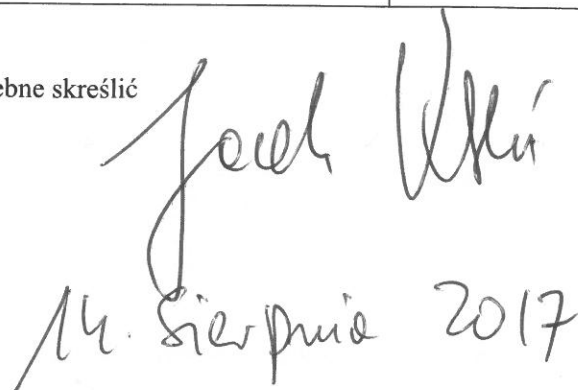 ebne skreślić
Jacek
14. Sierpnia 2017